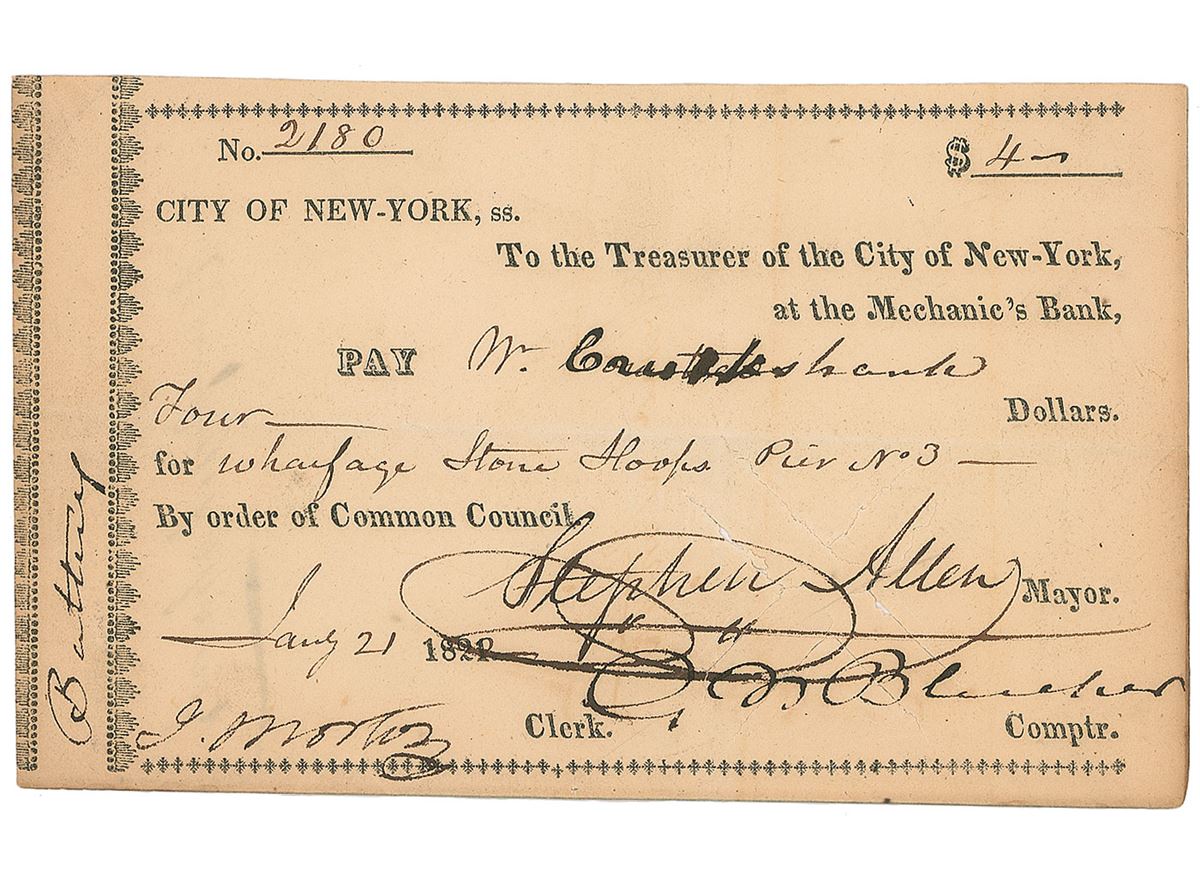 No. 2180 $ 4
CITY OF NEW-YORK, ss.
To the Treasurer of the City of New-York,
at the Mechanic's Bank,
PAY W.
Four Dollars.
for Wharfage Stone Hoops Pier No 3
By order of Common Council,
Stephen Allen Mayor.
Jany 21 182
J. Morton Clerk. Comptr.
Battery